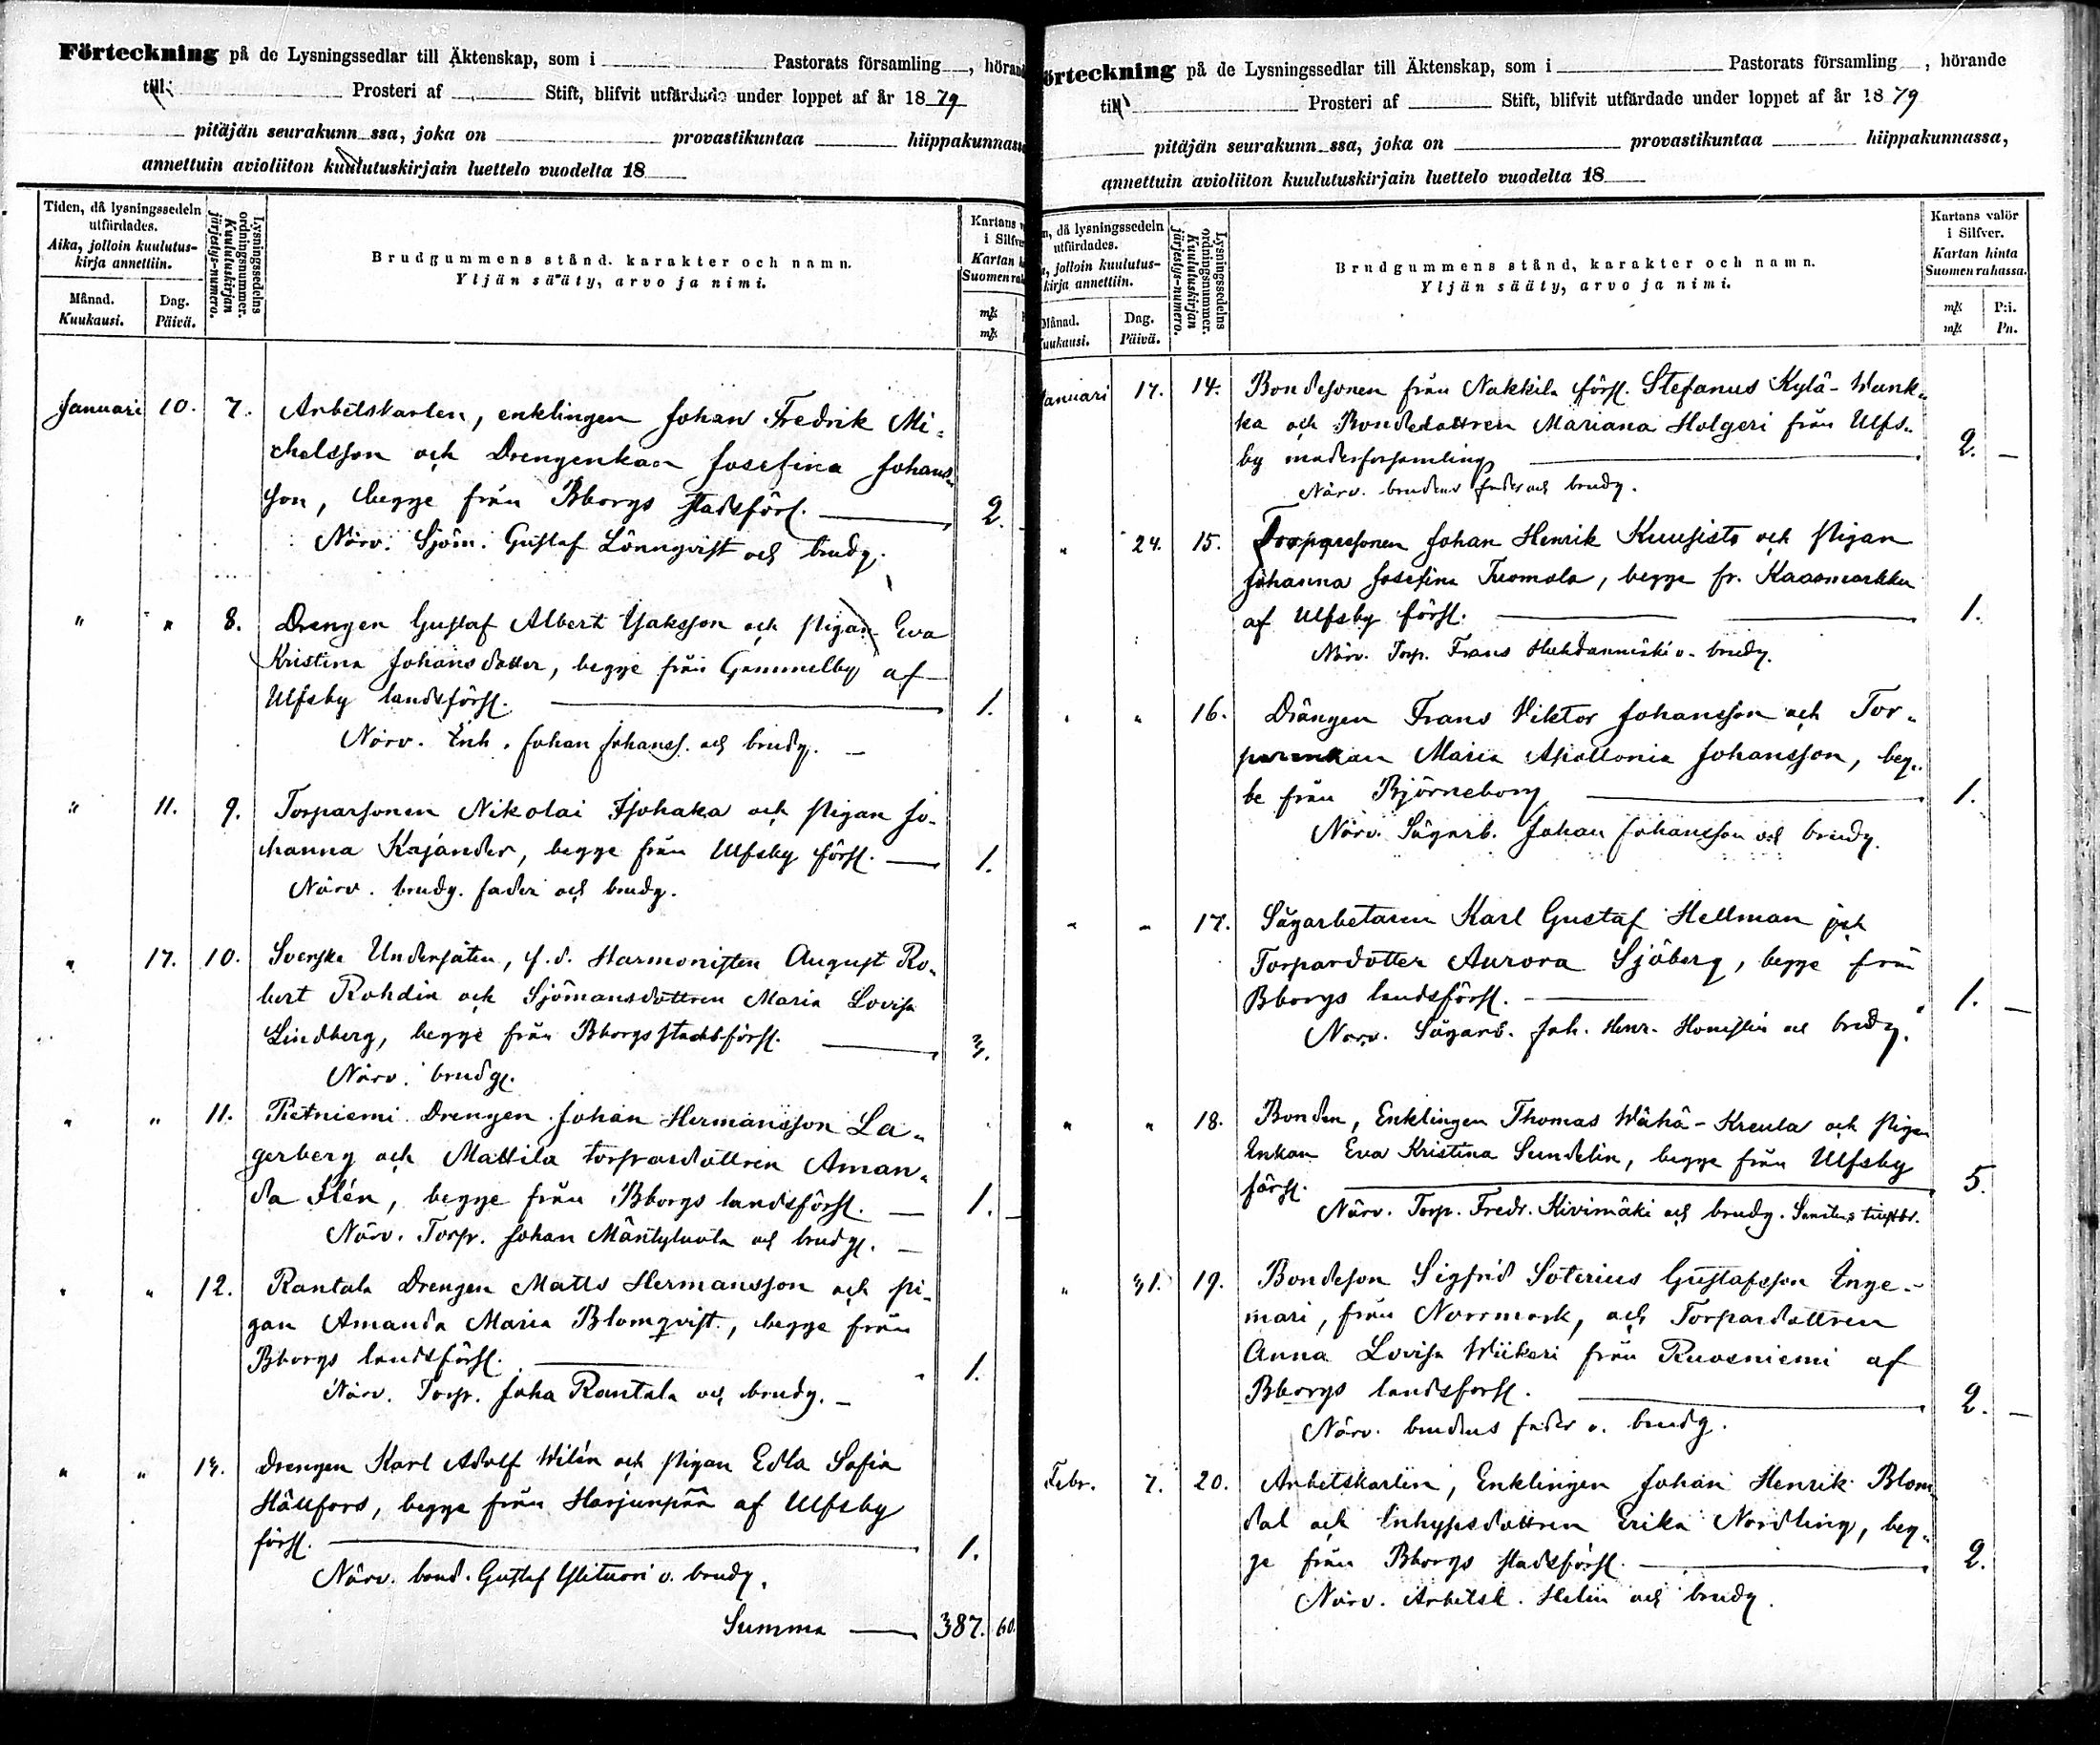 Förteckning på de Lysningssedlar till Äktenskap, som i Pastorats församling, hörande
till Prosteri af Stift, blifvit utfärdade under loppet af år 1879
pitäjän seurakunn ssa, joka on provastikuntaa hiippakunnassa
annettuin avioliiton kuulutuskirjain luettelo vuodelta 18
Tiden, då lysningssedeln utfärdades.
Aika, jolloin kuulutus-kirja annettiin.
Månad.
Kuukausi.
Dag.
Päivä.
Lysningssedelns ordningsnummer.
Kuulutuskirjan järjestys-numero.
Brudgummens stånd, karakter och namn.
Yljän sääty, arvo ja nimi.
Kartans
i Silfver
Kartan
Suomen
mk
mk
Januari 10. 7. Arbetskarlen, enklingen Johan Fredrik Mi-
chelsson och Drengenkan Josefina Johans-
son, begge från Bborgs stadsförs. 2.
Närv. Sjöm. Gustaf Lönnqvist och brudg.
" " 8. Drengen Gustaf Albert Isaksson och pigan Eva
Kristina Johansdotter, begge från Gammelby af
Ulfsby landsförs. 1.
Närv. Inh. Johan Johanss. och brudg.
" 11. 9. Torparsonen Nikolai Isohaka och pigan Jo-
hanna Kajander, begge från Ulfsby förs. 1.
Närv. brudg. fader och brudg.
" 17. 10. Svenske Undersåten, f.d. Harmonisten August Ro-
bert Rohdin och Sjömansdottren Maria Lovisa
Lindberg, begge från Bborgs stadsförs. 3.
Närv. brudg.
" " 11. Pietniemi Drengen Johan Hermansson La-
gerberg och Mattila torpardottren Aman-
da Flén, begge från Bborgs landsförs. 1. –
Närv. Torp. Johan Mäntyluota och brudg.
" " 12. Rantala Drengen Matts Hermansson och pi-
gan Amanda Maria Blomqvist, begge från
Bborgs landsförs. 1.
Närv. Torp. Joha Rantala och brudg.
" " 13. Drengen Karl Adolf Wilén och pigan Edla Sofia
Hällfors, begge från Harjunpää af Ulfsby
förs. 1.
Närv. bond. Gustaf Ylituori o. brudg.
Summa 387. 60.
Förteckning på de Lysningssedlar till Äktenskap, som i Pastorats församling, hörande
till Prosteri af Stift, blifvit utfärdade under loppet af år 1879
pitäjän seurakunn ssa, joka on provastikuntaa hiippakunnassa,
annettuin avioliiton kuulutuskirjain luettelo vuodelta 18
n, då lysningssedeln utfärdades.
, jolloin kuulutus-kirja annettiin.
Månad.
Kuukausi.
Dag.
Päivä.
Lysningssedelns ordningsnummer.
Kuulutuskirjan järjestys-numero.
Brudgummens stånd, karakter och namn.
Yljän sääty, arvo ja nimi.
Kartans valör
i Silfver.
Kartan hinta
Suomen rahassa.
mk P:i.
mk Pn.
Januari 17. 14. Bondesonen från Nakkila förs. Stefanus Kylä-Wank-
ka och Bondedottren Mariana Holgeri från Ulfs-
by moderförsamling 2. –
Närv. brudens fader och brudg.
" 24. 15. Torparsonen Johan Henrik Kuusisto och pigan
Johanna Josefina Tuomola, begge fr. Kaasmarkku
af Ulfsby förs. 1.
Närv. Torp. Frans o. brudg.
" " 16. Drängen Frans Viktor Johansson och Tor-
parenkan Maria Apollonia Johansson, beg-
be från Björneborg 1.
Närv. Sågarb. Johan Johansson och brudg.
" " 17. Sågarbetaren Karl Gustaf Hellman och
Torpardotter Aurora Sjöberg, begge från
Bborgs landsförs. 1. –
Närv. Sågarb. Joh. Henr. och brudg.
" " 18. Bonden, Enklingen Thomas Wähä-Kreula och pigan
Enkan Eva Kristina Sundelin, begge från Ulfsby
förs. 5.
Närv. Torp. Fredr. Kivimäki och brudg.
" 31. 19. Bondeson Sigfrid Soterius Gustafsson Inge-
mari, från Norrmark, och Torpardottren
Anna Lovisa Wiikeri från Ruosniemi af
Bborgs landsförs. 2. –
Närv. brudens fader o. brudg.
Febr. 7. 20. Arbetskarlen, Enklingen Johan Henrik Blom-
dal och Inhysesdottren Erika Nordling, beg-
ge från Bborgs stadsförs. 2.
Närv. Arbetsk. Helin och brudg.